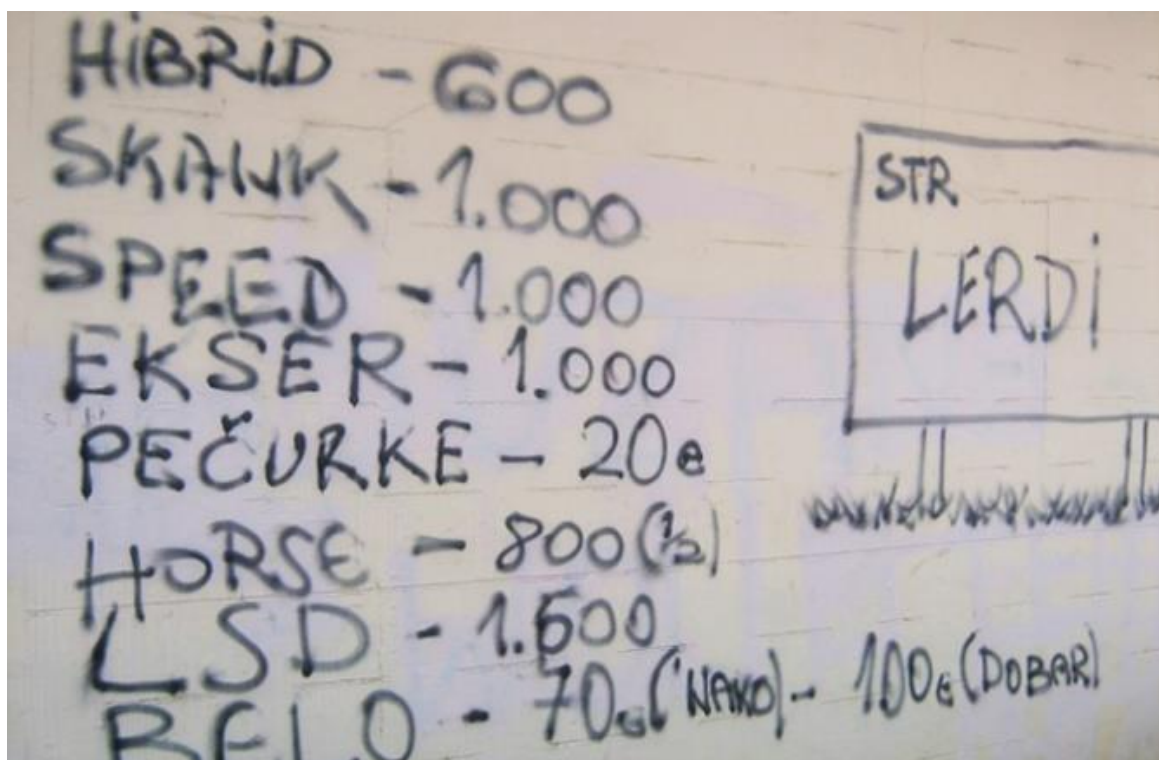 HiBRiD - 600
SKANK - 1.000
SPEED - 1.000
EKSER - 1.000
PEČURKE - 20e
HORSE - 800 (1/2)
LSD - 1.600
BELO - 70e ('NAKO) - 100e (DOBAR)
STR.
LERDi